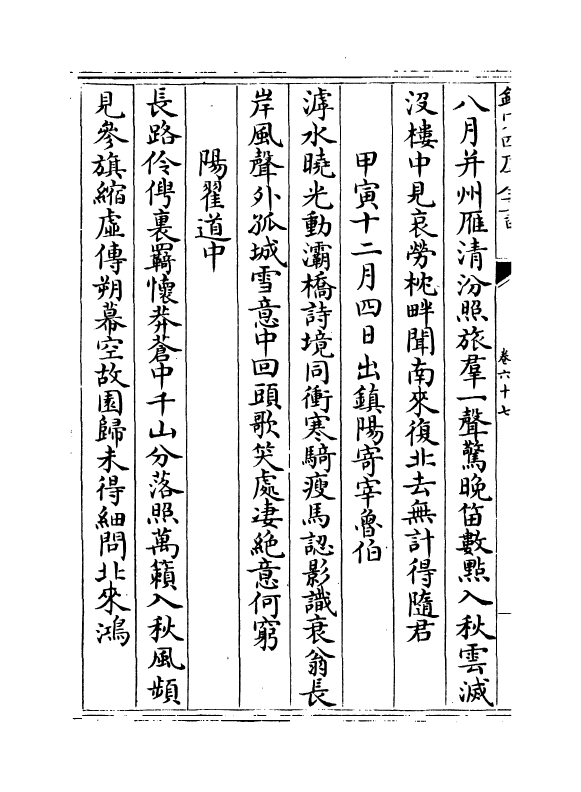 卷六十七
八月并州雁清汾照旅羣一聲驚晚笛數點入秋雲滅
沒樓中見哀勞枕畔聞南來復北去無計得隨君
甲寅十二月四日出鎮陽寄宰魯伯
滹水曉光動灞橋詩境同衝寒騎瘦馬認影識衰翁長
岸風聲外孤城雪意中回頭歌笑處淒絶意何窮
陽翟道中
長路伶俜裏羈懷莽蒼中千山分落照萬籟入秋風頻
見參旗縮虛傳朔幕空故園歸未得細問北來鴻